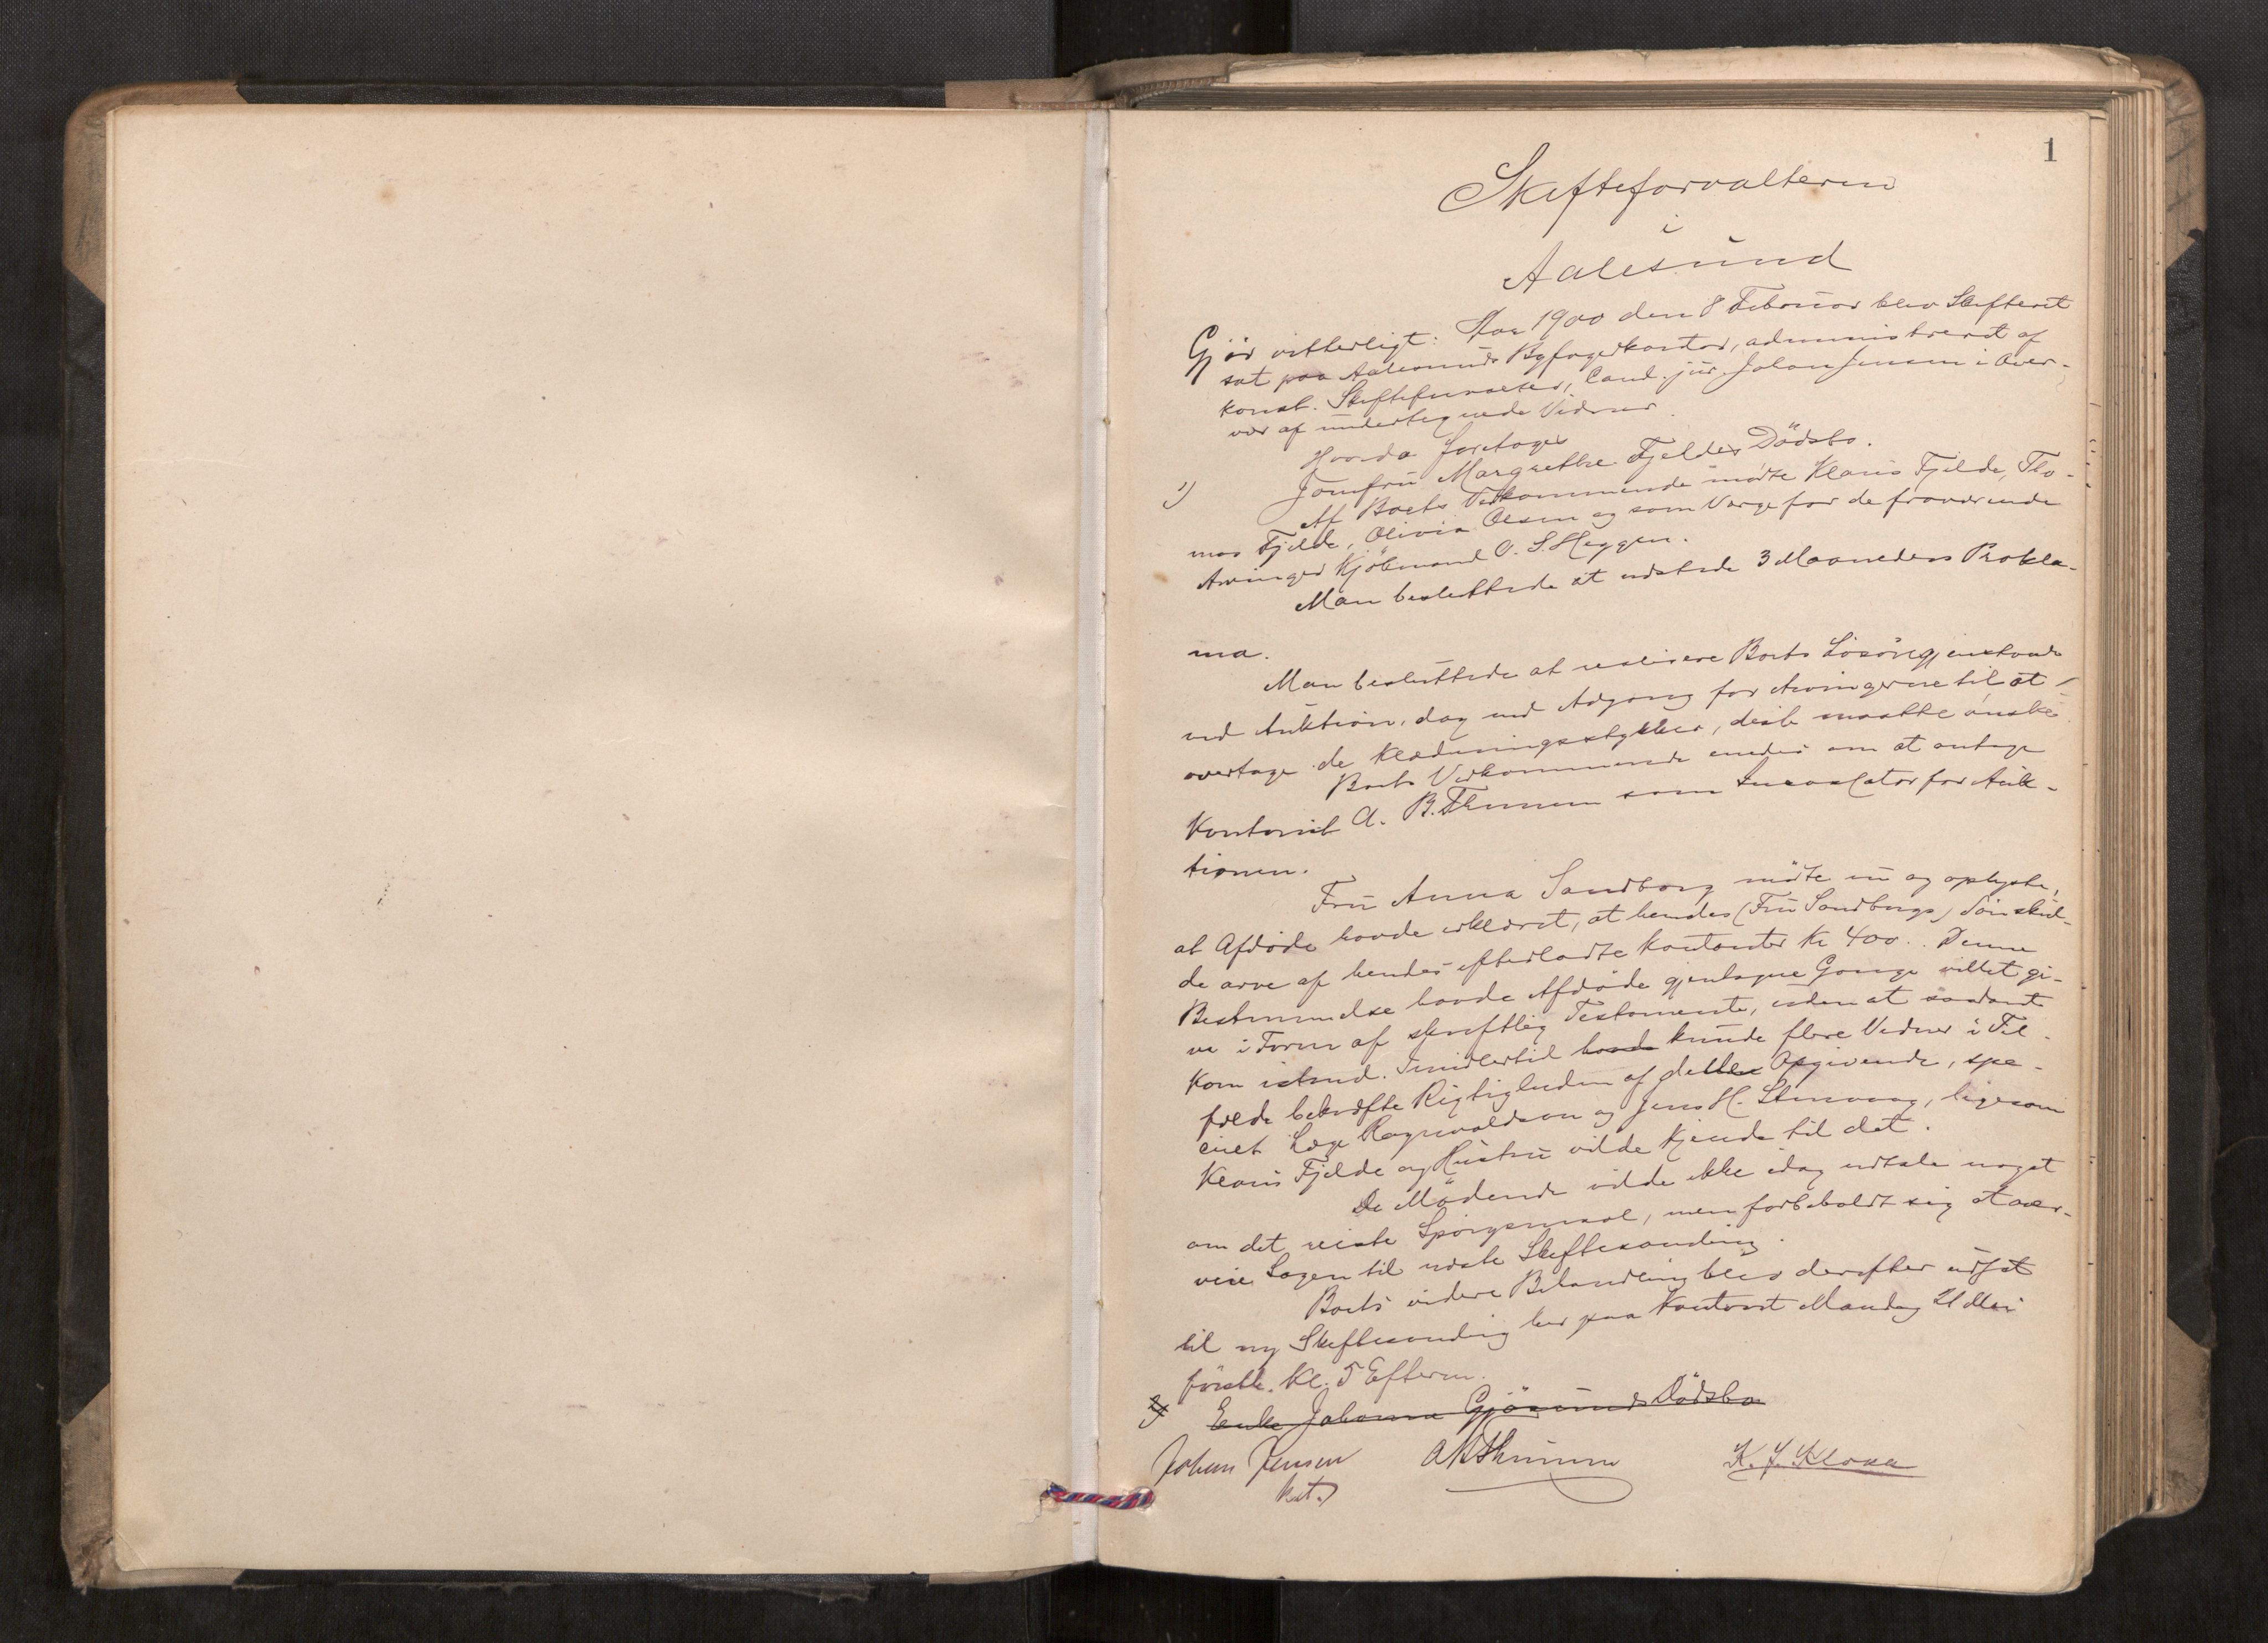 1
Skifteforvalteren
i
Aalesund
Gjör vitterligt: Aar 1900 den 8 Februar blev Skifteret
sat paa Aalesunds Byfogedkontor, administreret af
konst. Skifteforvalter, Cand. jur. Johan Jensen i Over-
vær af undertegnede Vidner.
Hvorda foretoges
1) Jomfru Margrethe Fjeldes Dödsbo.
Af Boets Vedkommende mödte Klaus Fjelde, Tho-
mas Fjelde, Olivia Olsen og som Værge for de fraværende
Arvinger Kjöbmand O. S. Heggen.
Man besluttede at udstede 3 Maaneders Prokla-
ma.
Man besluttede at realisere Boets Lösöregjenstande
ved Auktion, dog med Adgang for Arvingerne til at
overtage de Klædningsstykker, disse maatte önske.
Boets Vedkommende enedes om at antage
Kontorist A. B. Thunem som Incassator for Auk-
tionen.
Fru Anna Sandborg mödte nu og oplyste,
at Afdöde havde erklæret, at hendes (Fru Sandborgs) Sön skul-
de arve af hendes efterladte kontanter Kr 400.. Denne
Bestemmelse havde Afdöde gjentagne Gange villet gi-
ve i Form af skriftlig Testamente, uden at saadant
kom istand. Imidlertid havde kunde flere Vidner i Til-
fælde bekræfte Rigtigheden af dette Opgivende, spe-
cielt Læge Ragnvaldson og Jens H. Stenvaag, ligesom
Klaus Fjelde og Hustru vilde kjende til det.
De Mödende vilde ikke idag udtale noget
om det reiste Spörgsmaal, men forbeholdt sig at over-
veie Sagen til næste Skiftesamling.
Boets videre Behandling blev derefter udsat
til ny Skiftesamling her paa Kontoret Mandag 21 Mai
förstk. Kl. 5 Efterm.
2) Enke Johanna Gjörunds Dödsbo
Johan Jensen ABThunem K. J. Klokk
kst.